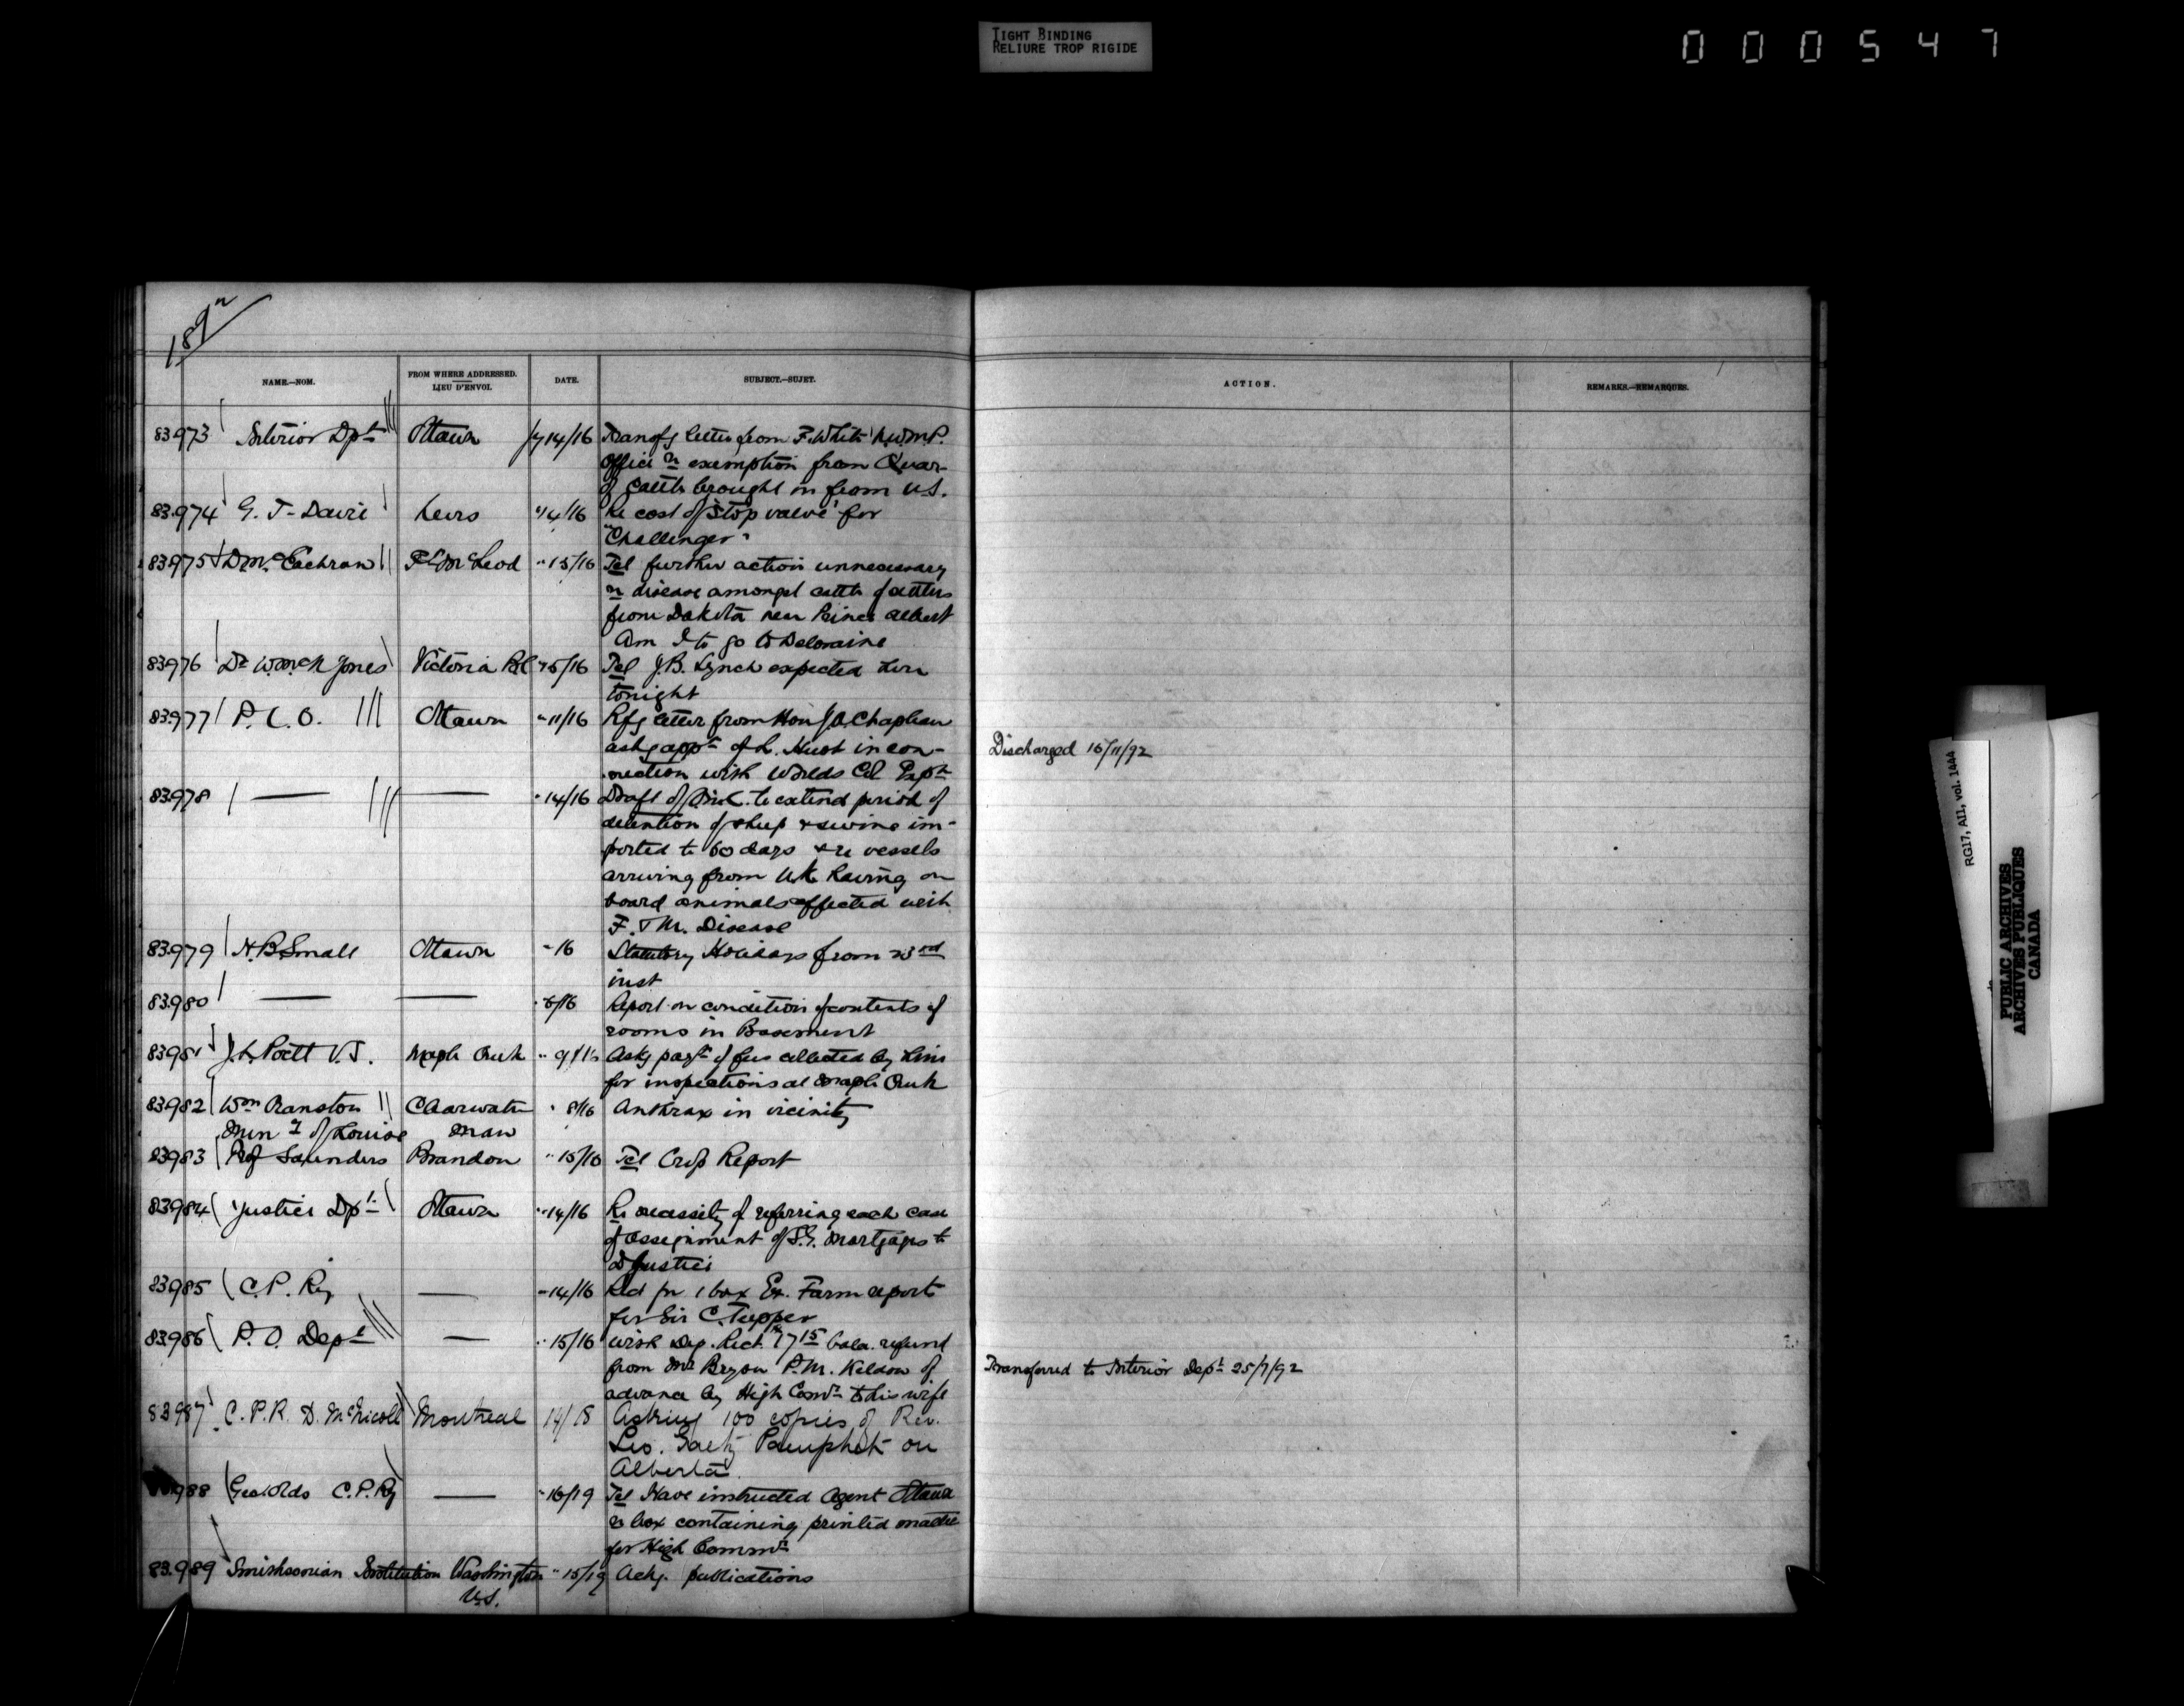 TIGHT BINDING
RELIURE TROP RIGIDE
000547
1892
NAME.—NOM. FROM WHERE ADDRESSED. LIEU D'ENVOI. DATE. SUBJECT.—SUJET. ACTION. REMARKS.—REMARQUES.
83973 Interior Dpt Ottawa Jy 14/16 Transfg letter from F. White N.W.M.P.
office re exemption from Quar-
of cattle brought in from U.S.
83974 G. T. Davie Levis " 14/16 Re cost of "Stop valve" for
"Challenger"
83975 D McEachran Ft McLeod " 15/16 Tel further action unnecessary
re disease amongst cattle of settlers
from Dakota near Prince Albert
Am I to go to Deloraine
83976 Dr W. McN Jones Victoria B.C. " 15/16 Tel J.B. Lynch expected here
tonight
83977 P. C. O. Ottawa " 11/16 Rfg letter from Hon J.A. Chapleau
askg appt of L. Huot in con-
nection with Worlds Col. Expn
Discharged 16/11/92
83978 — — " 14/16 Draft of to extend period of
detention of sheep & swine im-
ported to 60 days & re vessels
arriving from U.K. having on
board animals affected with
F. & M. Disease
83979 H. B. Small Ottawa " 16 Statutory Holidays from 23rd
inst
83980 — — " 6/16 Report on condition of contents of
rooms in Basement
83981 J. L. Poett V.S. Maple Creek " 9/16 Askg payt of fees collected by him
for inspections at Maple Creek
83982 Wm Cranston Clearwater " 8/16 Anthrax in vicinity
Munty of Louise Man
83983 Prof Saunders Brandon " 15/16 Tel Crop Report
83984 Justice Dpt Ottawa " 14/16 Re necessity of referring each case
of assignment of S.G. Mortgages to
D Justice
83985 C. P. Ry — " 14/16 Recd for 1 box Ex. Farm reports
for Sir C. Tupper
83986 P. O. Dept — " 15/16 With Dep. Rect. $7 15 bala. refund
from Mr Bryon P.M. Keldon of
advance by High Comr to his wife
Transferred to Interior Dept 25/7/92
83987 C. P. R. D. McNicoll Montreal 14/18 Asking 100 copies of Rev.
Leo. Gaetz Pamphlet on
Alberta.
83988 Geo Olds C.P.Ry — " 16/19 Tel Have instructed Agent Ottawa
re box containing printed matter
for High Commr
83989 Smithsonian Institution Washington " 15/19 Ackg. publications
U.S.
RG17, AII, vol. 1444
PUBLIC ARCHIVES
ARCHIVES PUBLIQUES
CANADA